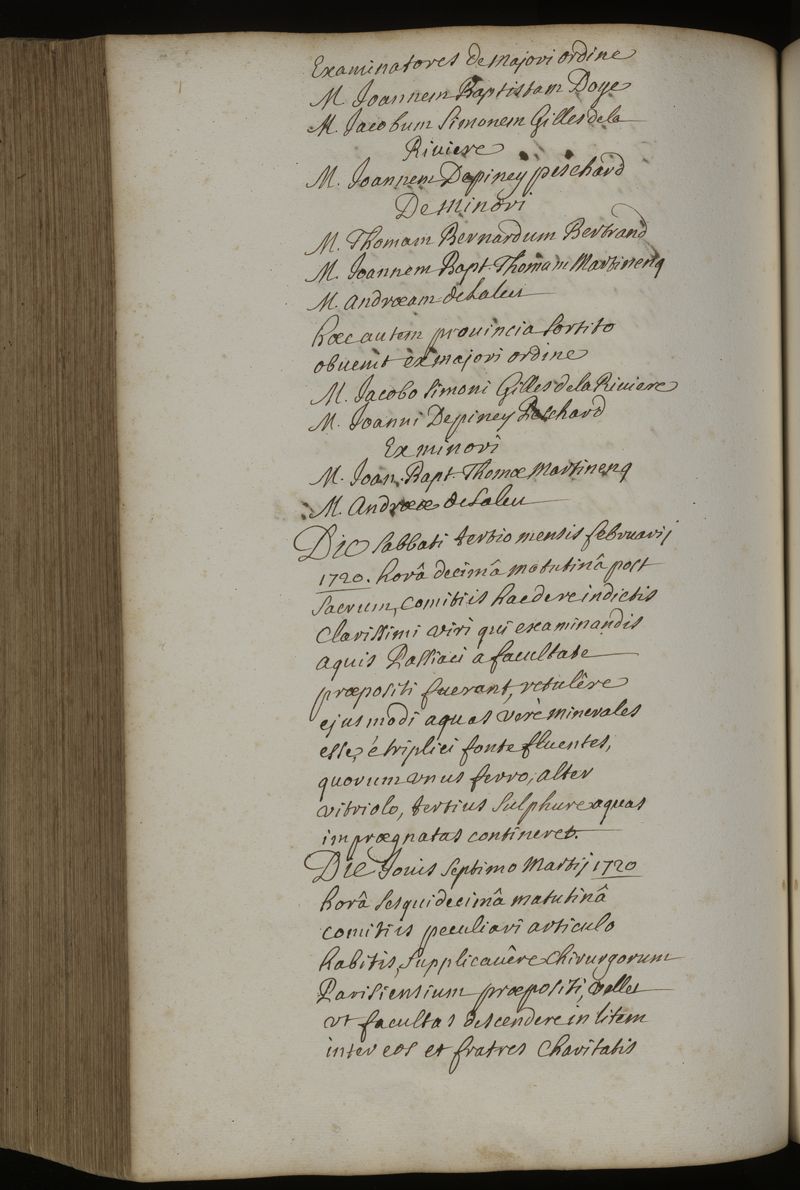 Examinatores de majori ordine
M. Joannem Baptistam Doye
M. Jacobum Simonem Gilles de la
Riviere
M. Joannem Depiney peschard
De Minori
M. Thomam Bernardum Bertrand
M. Joannem Bapt. Thomam Martinenq
M. Andræam de Laleu
hæc autem provincia sortito
obvenit ex majori ordine
M. Jacobo Simoni Gilles de la Riviere
M. Joanni Depiney Peschard
Ex minori
M. Joan. Bapt. Thomæ Martinenq
M. Andrææ de Laleu
Die Sabbati tertio mensis februarij
1720. horâ decimâ matutinâ post
Sacrum, Comitiis hac de re indictis
Clarissimi viri qui examinandis
aquis Passiaci a facultate
præpositi fuerant, retulêre
ejusmodi aquas verè minerales
esse, é triplici fonte fluentes,
quorum unus ferro, alter
vitriolo, tertius Sulphure aquas
imprægnatas contineret.
Die Jovis Septimo Martij 1720
horâ Sesquidecimâ matutinâ
comitiis peculiari articulo
habitis, Supplicavêre Chirurgorum
Parisiensium præpositi, vellet
ut facultas descendere in litem
inter eos et fratres Charitatis